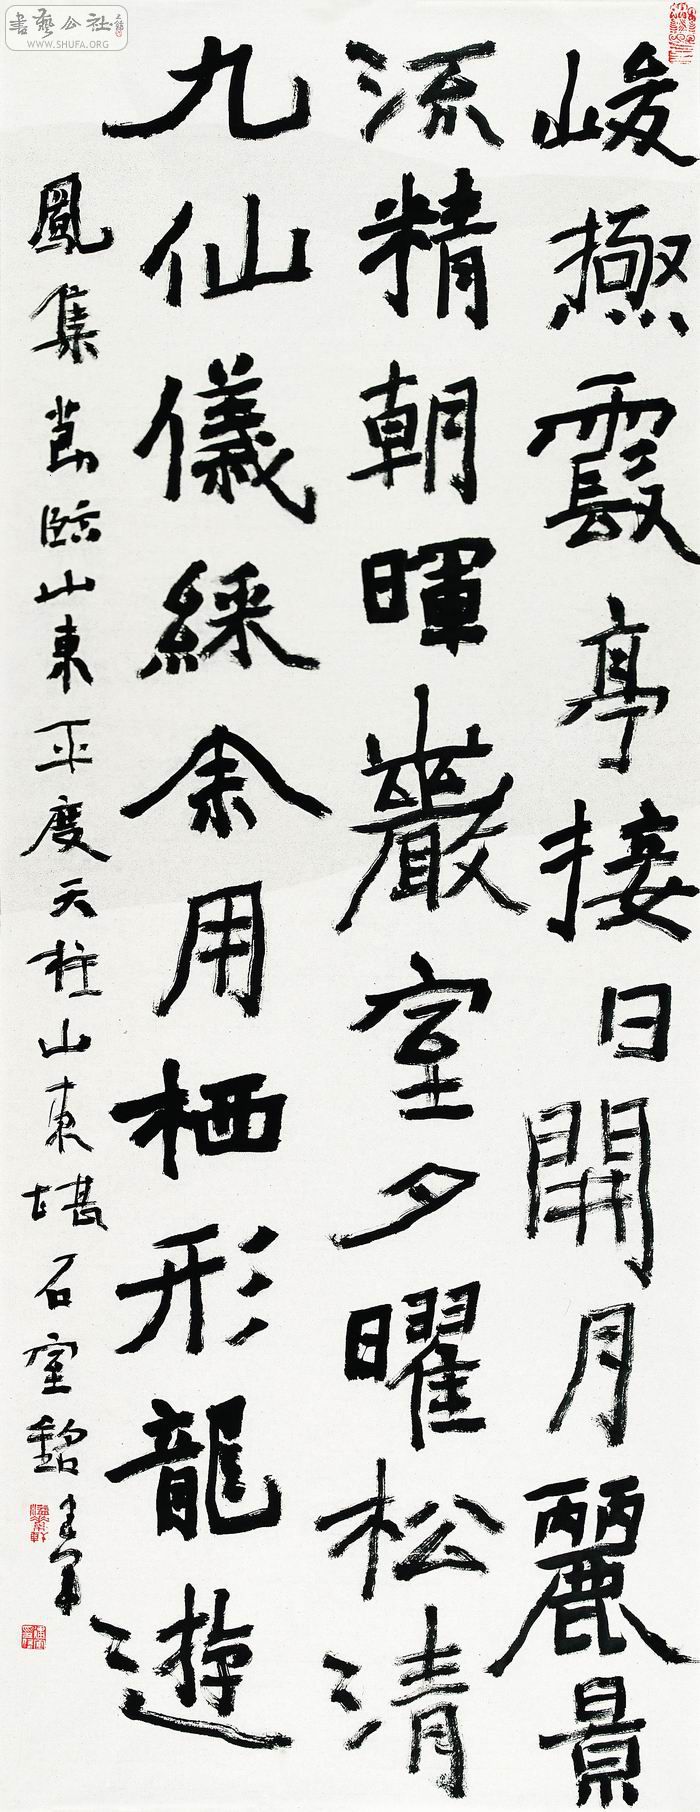 峻極霞亭接日開月麗景
流精朝暉巖室夕曜松清
九仙儀綵余用栖形龍遊
鳳集節臨山東平度天柱山東堪石室銘
書藝公社
WWW.SHUFA.ORG